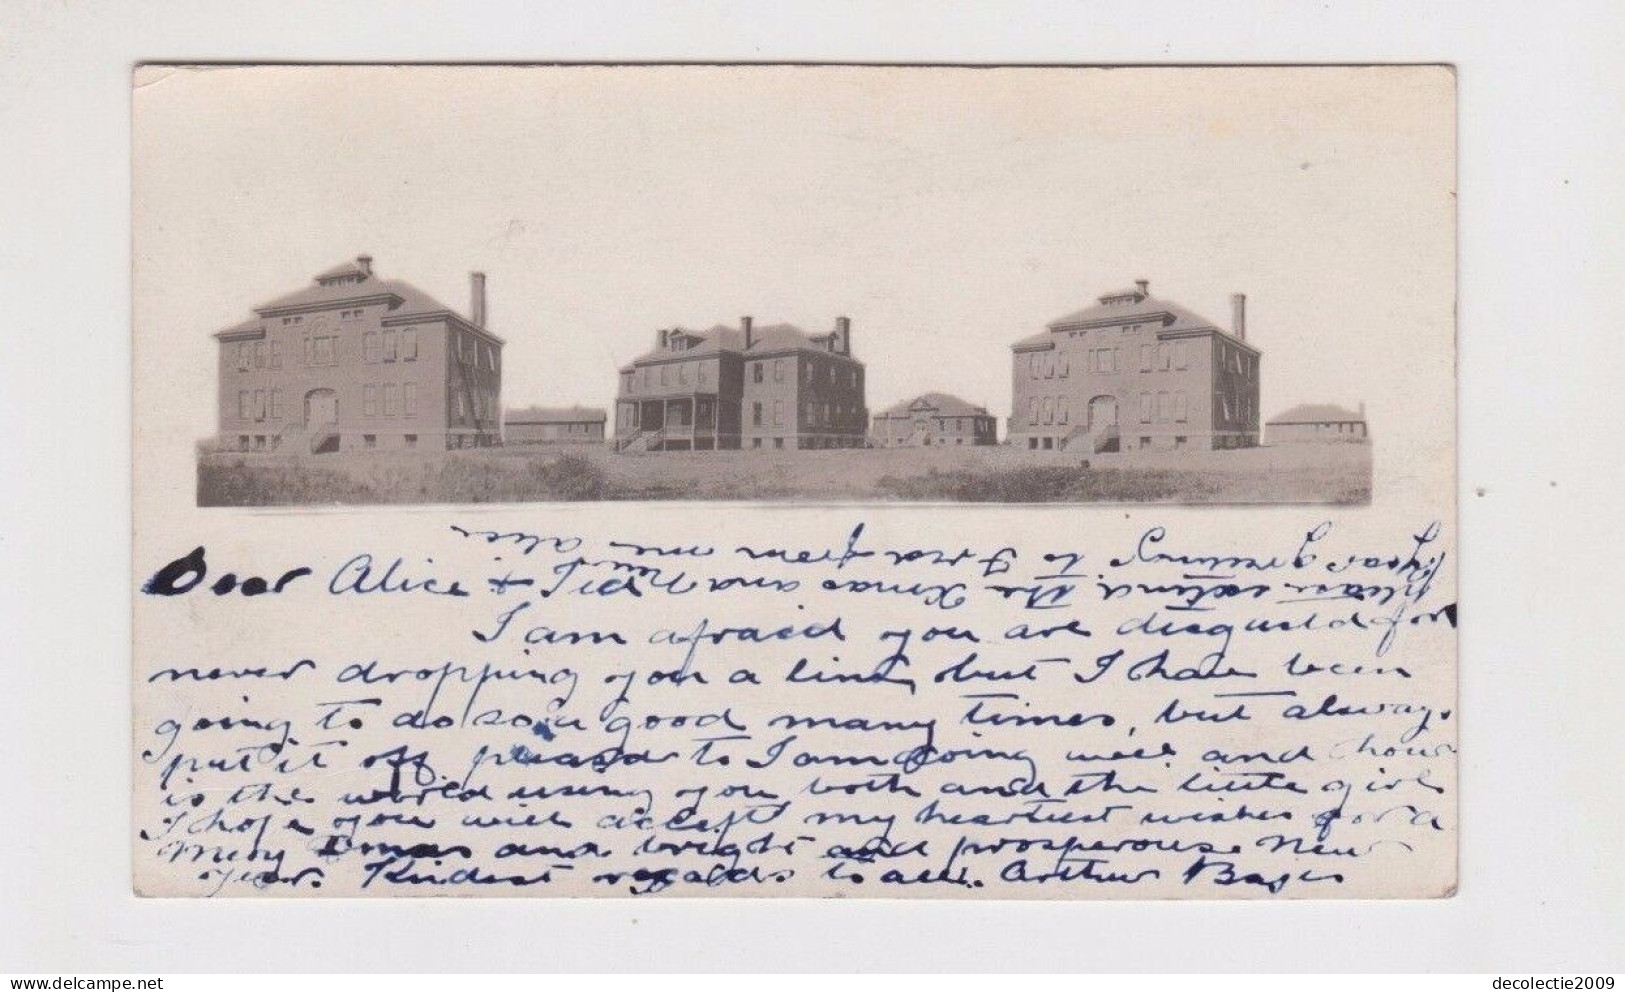 Dear Alice & Ted
I am afraid you are disgusted for
never dropping you a line, but I have been
going to do so a good many times, but always
put it off pleased to I am going well and how
is the world using you both and the little girl
I hope you will accept my heartiest wishes for a
Merry Xmas and bright and prosperous New
Year. Kindest regards to all. Arthur
please extend the Xmas and New
Year greetings to Fred from me Alice
delcampe.net
decolectie2009